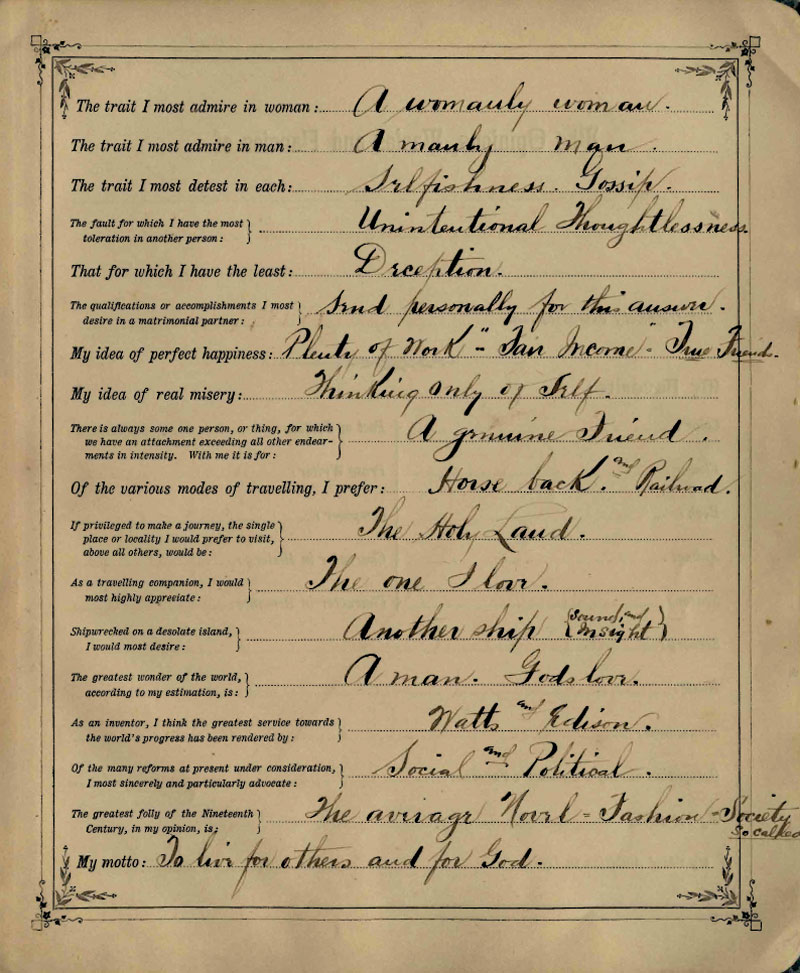 The trait I most admire in woman: A womanly woman.
The trait I most admire in man: A manly man.
The trait I most detest in each: Selfishness. Gossip.
The fault for which I have the most
toleration in another person: Unintentional Thoughtlessness
That for which I have the least: Deception.
The qualifications or accomplishments I most
desire in a matrimonial partner: Send personally for this answer.
My idea of perfect happiness: Plenty of Work" - Fair Income" - True Friends.
My idea of real misery: Thinking only of Self.
There is always some one person, or thing, for which
we have an attachment exceeding all other endear-
ments in intensity. With me it is for: A genuine Friend.
Of the various modes of travelling, I prefer: Horse back. and Railroad.
If privileged to make a journey, the single
place or locality I would prefer to visit,
above all others, would be: The Holy Land.
As a travelling companion, I would
most highly appreciate: The one I love.
Shipwrecked on a desolate island,
I would most desire: Another ship (sound, and in sight)
The greatest wonder of the world,
according to my estimation, is: A man. Gods love.
As an inventor, I think the greatest service towards
the world's progress has been rendered by: Watts and Edison.
Of the many reforms at present under consideration,
I most sincerely and particularly advocate: Social and Political.
The greatest folly of the Nineteenth
Century, in my opinion, is: The average Novel - Fashion - Society
so called
My motto: To live for others and for God.